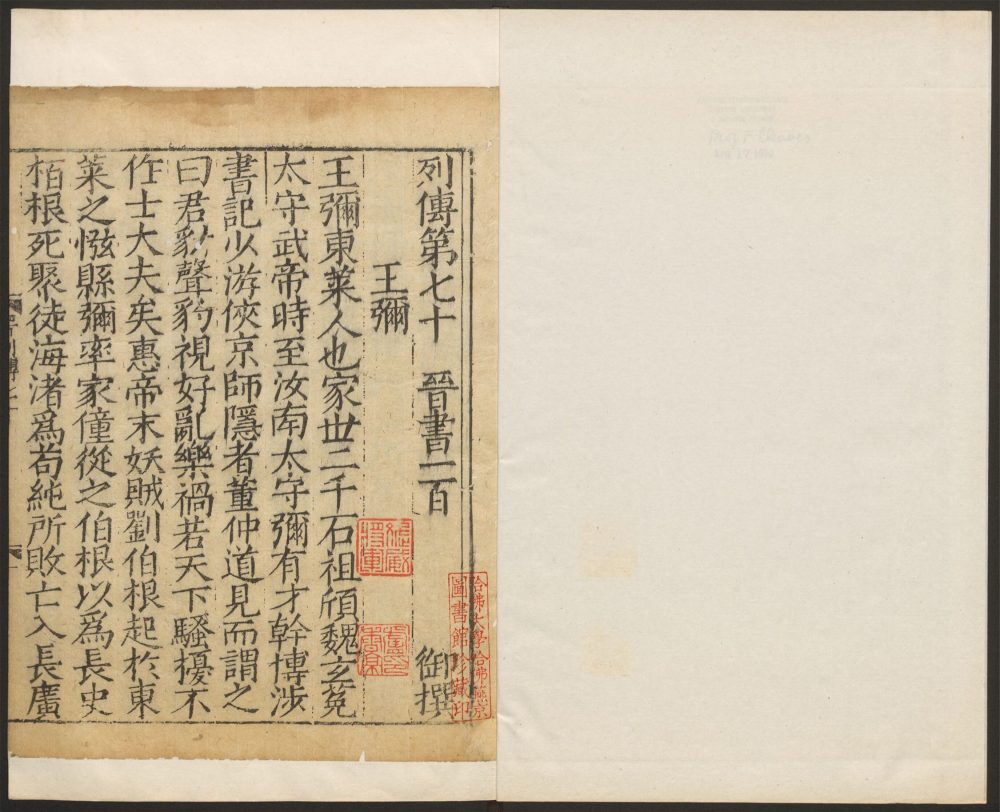 列傳第七十 晉書一百
御撰
王彌
王彌東萊人也家世二千石祖頎魏玄菟
太守武帝時至汝南太守彌有才幹博涉
書記少游俠京師隱者董仲道見而謂之
曰君豺聲豹視好亂樂禍若天下騷擾不
作士大夫矣惠帝末妖賊劉伯根起於東
萊之惤縣彌率家僮從之伯根以爲長史
栢根死聚徒海渚爲苟純所敗亡入長廣
哈佛大學哈佛燕京
圖書館珍藏印